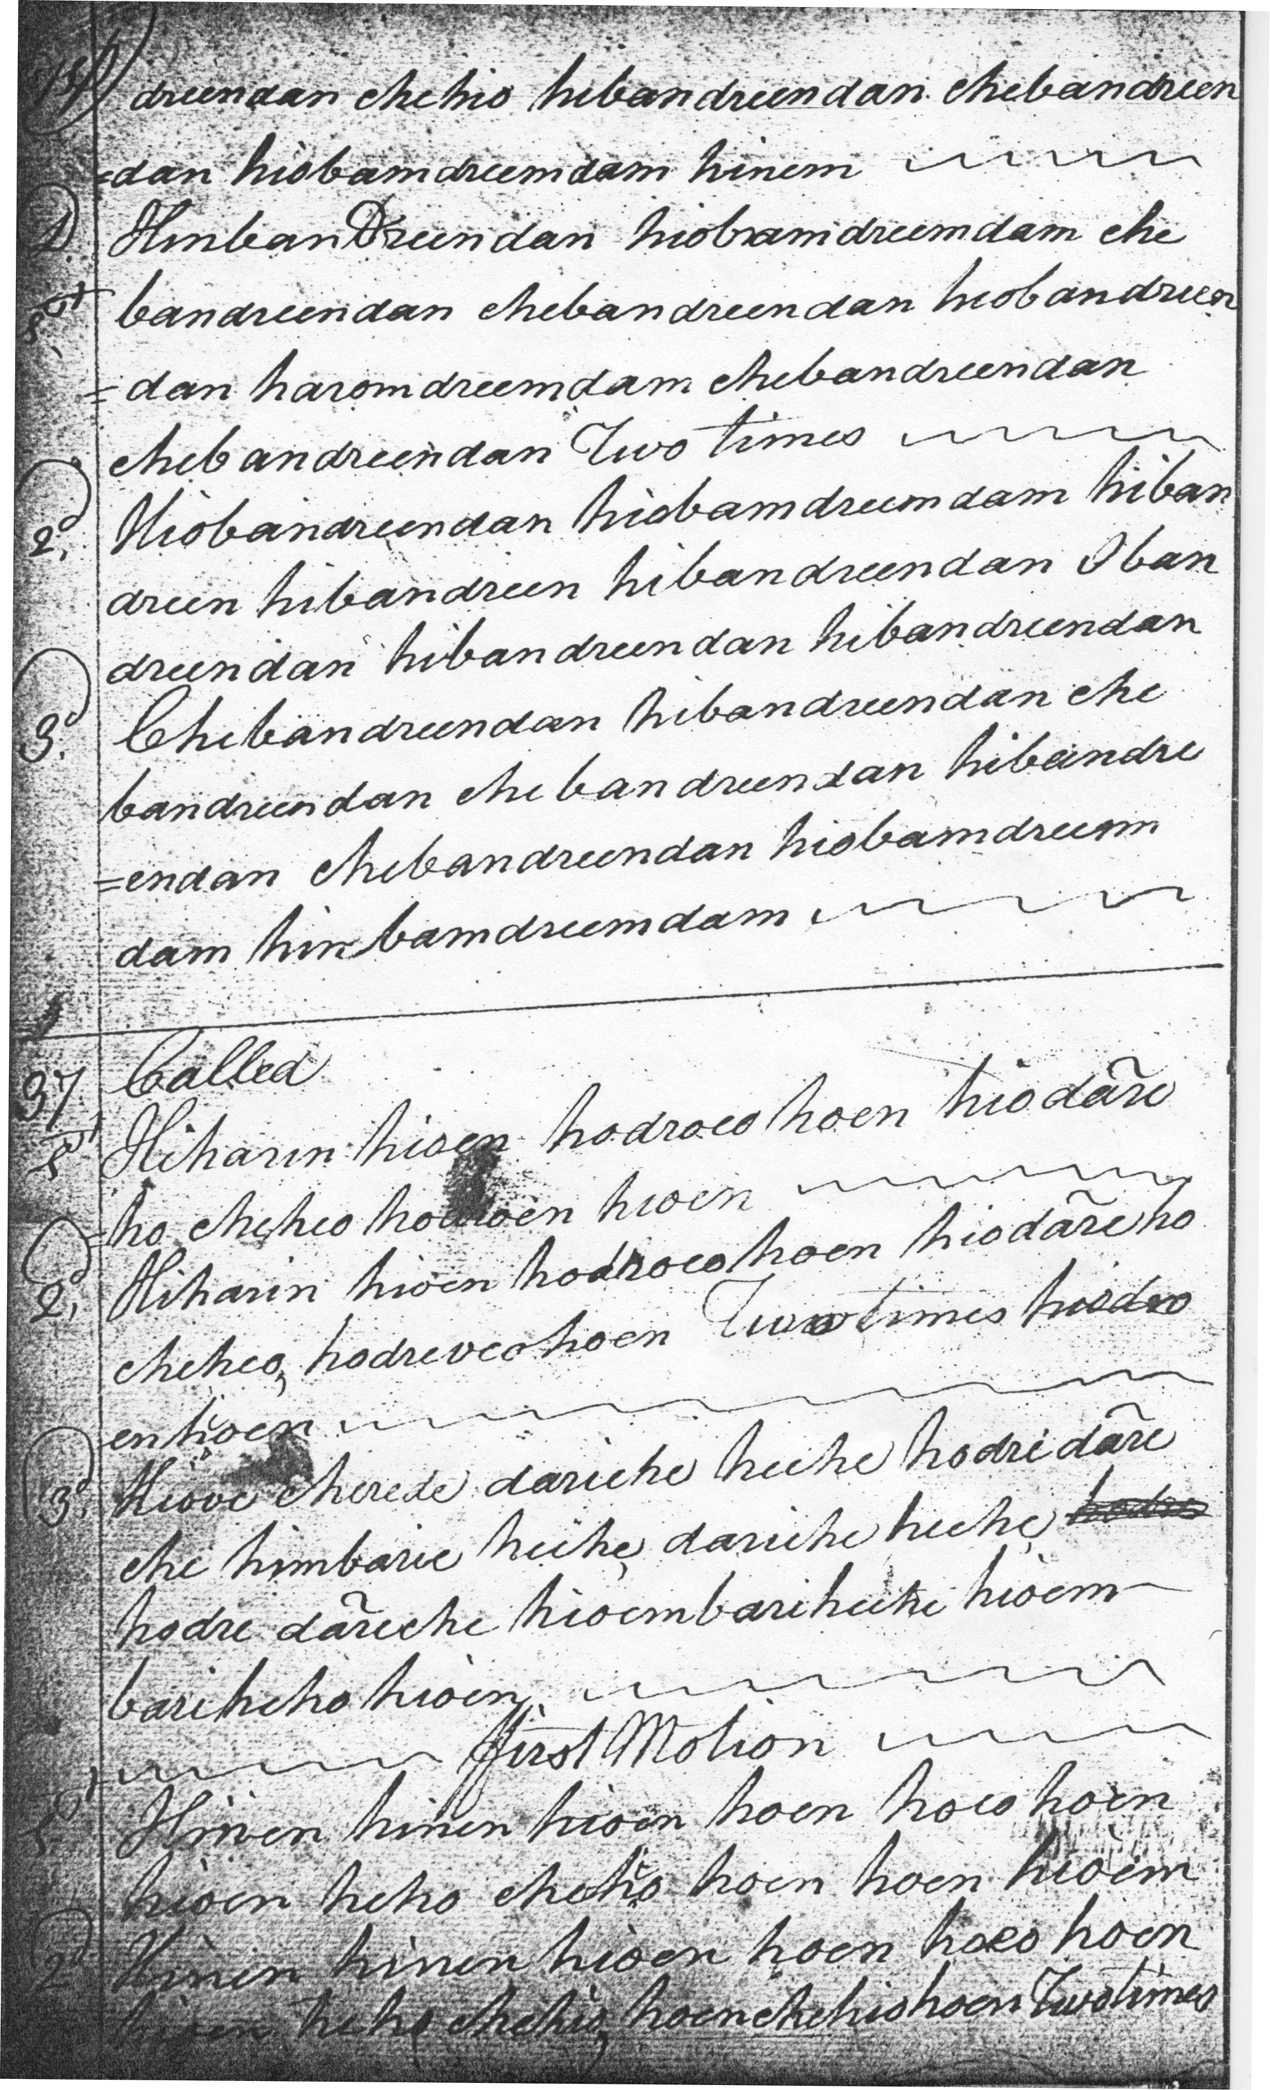 dreendan chehio hibandreendan chebandreen
=dan hiobamdreemdam hinem
D
1st HinbanDreendan hiobamdreemdam che
bandreendan chebandreendan hiobandreen
=dan haromdreemdam chebandreendan
chebandreendan Two times
2d Hiobandreendan hiobamdreemdam hiban
dreen hibandreen hibandreendan Oban
dreendan hibandreendan hibandreendan
3d Chebandreendan hibandreendan che
bandreendan chebandreendan hibandre
=endan chebandreendan hiobamdreem
dam hinbamdreemdam
37 Called
1st Hiharin hioen hodroeo hoen hiodãre
=ho cheheo hioen
2d, Hiharin hioen hodroeo hoen hiodãreho
cheheo, hodreveo hoen Two times hiodro
enhoen
3d. Hiove cherede dariche heche hodridãre
che himbarie hiche dariche heche
hodre dãreche hioembariheche hioem
bariheho hioen,
First Motion
1st Hinen hinen hioen hoen hoeo hoen
hioen heho cheho hoen hoen hioem
2d Hinen hinen hioen hoen hoeo hoen
hioen hehe chehio, hoenchehiohoen Two times